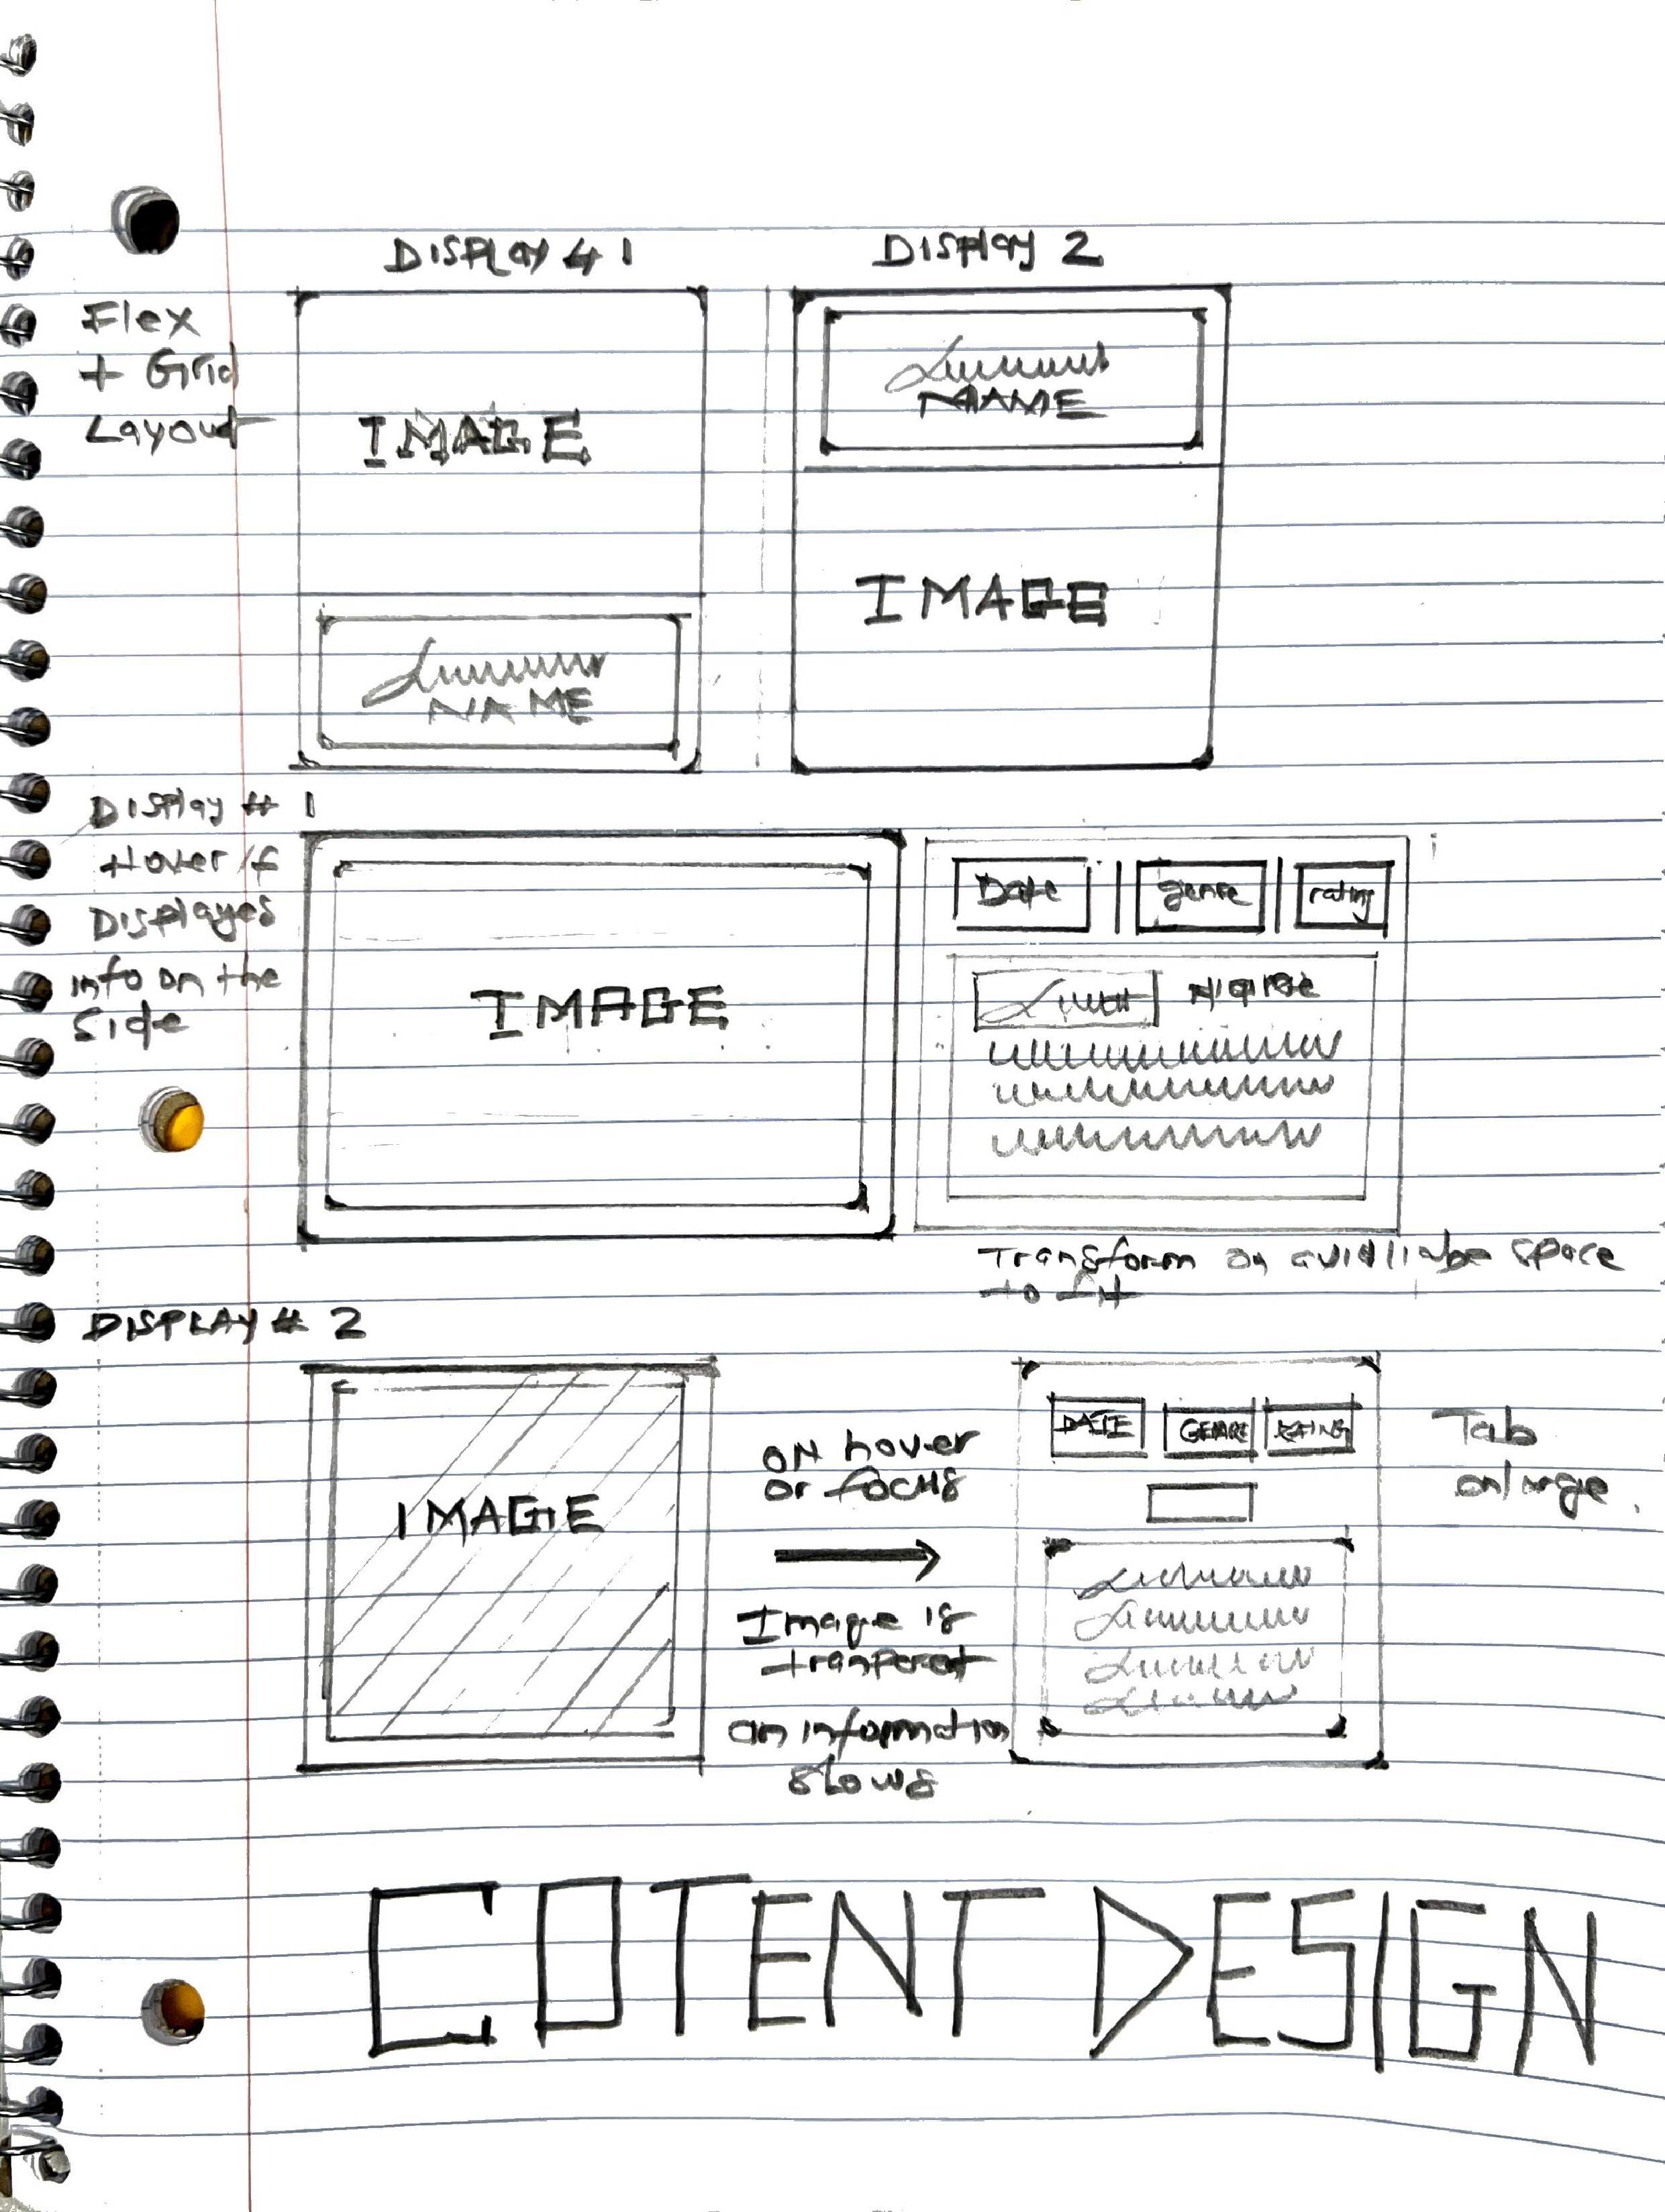 DISPLAY # 1
DISPLAY 2
Flex
+ Grid
Layout
IMAGE
NAME
NAME
IMAGE
DISPlay # 1
Hover if
DISPlayes
info on the
side
IMAGE
Date
genre
rating
Name
Transform on
space
to fit
DISPLAY # 2
IMAGE
ON hover
or focus
Image is
tranperent
an information
shows
DATE
GENRE
RATING
Tab
enlarge
COTENT DESIGN